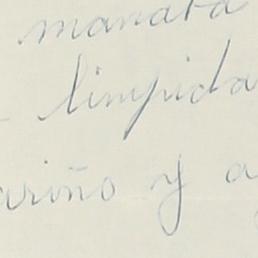 manaba
limpida
ariño y a